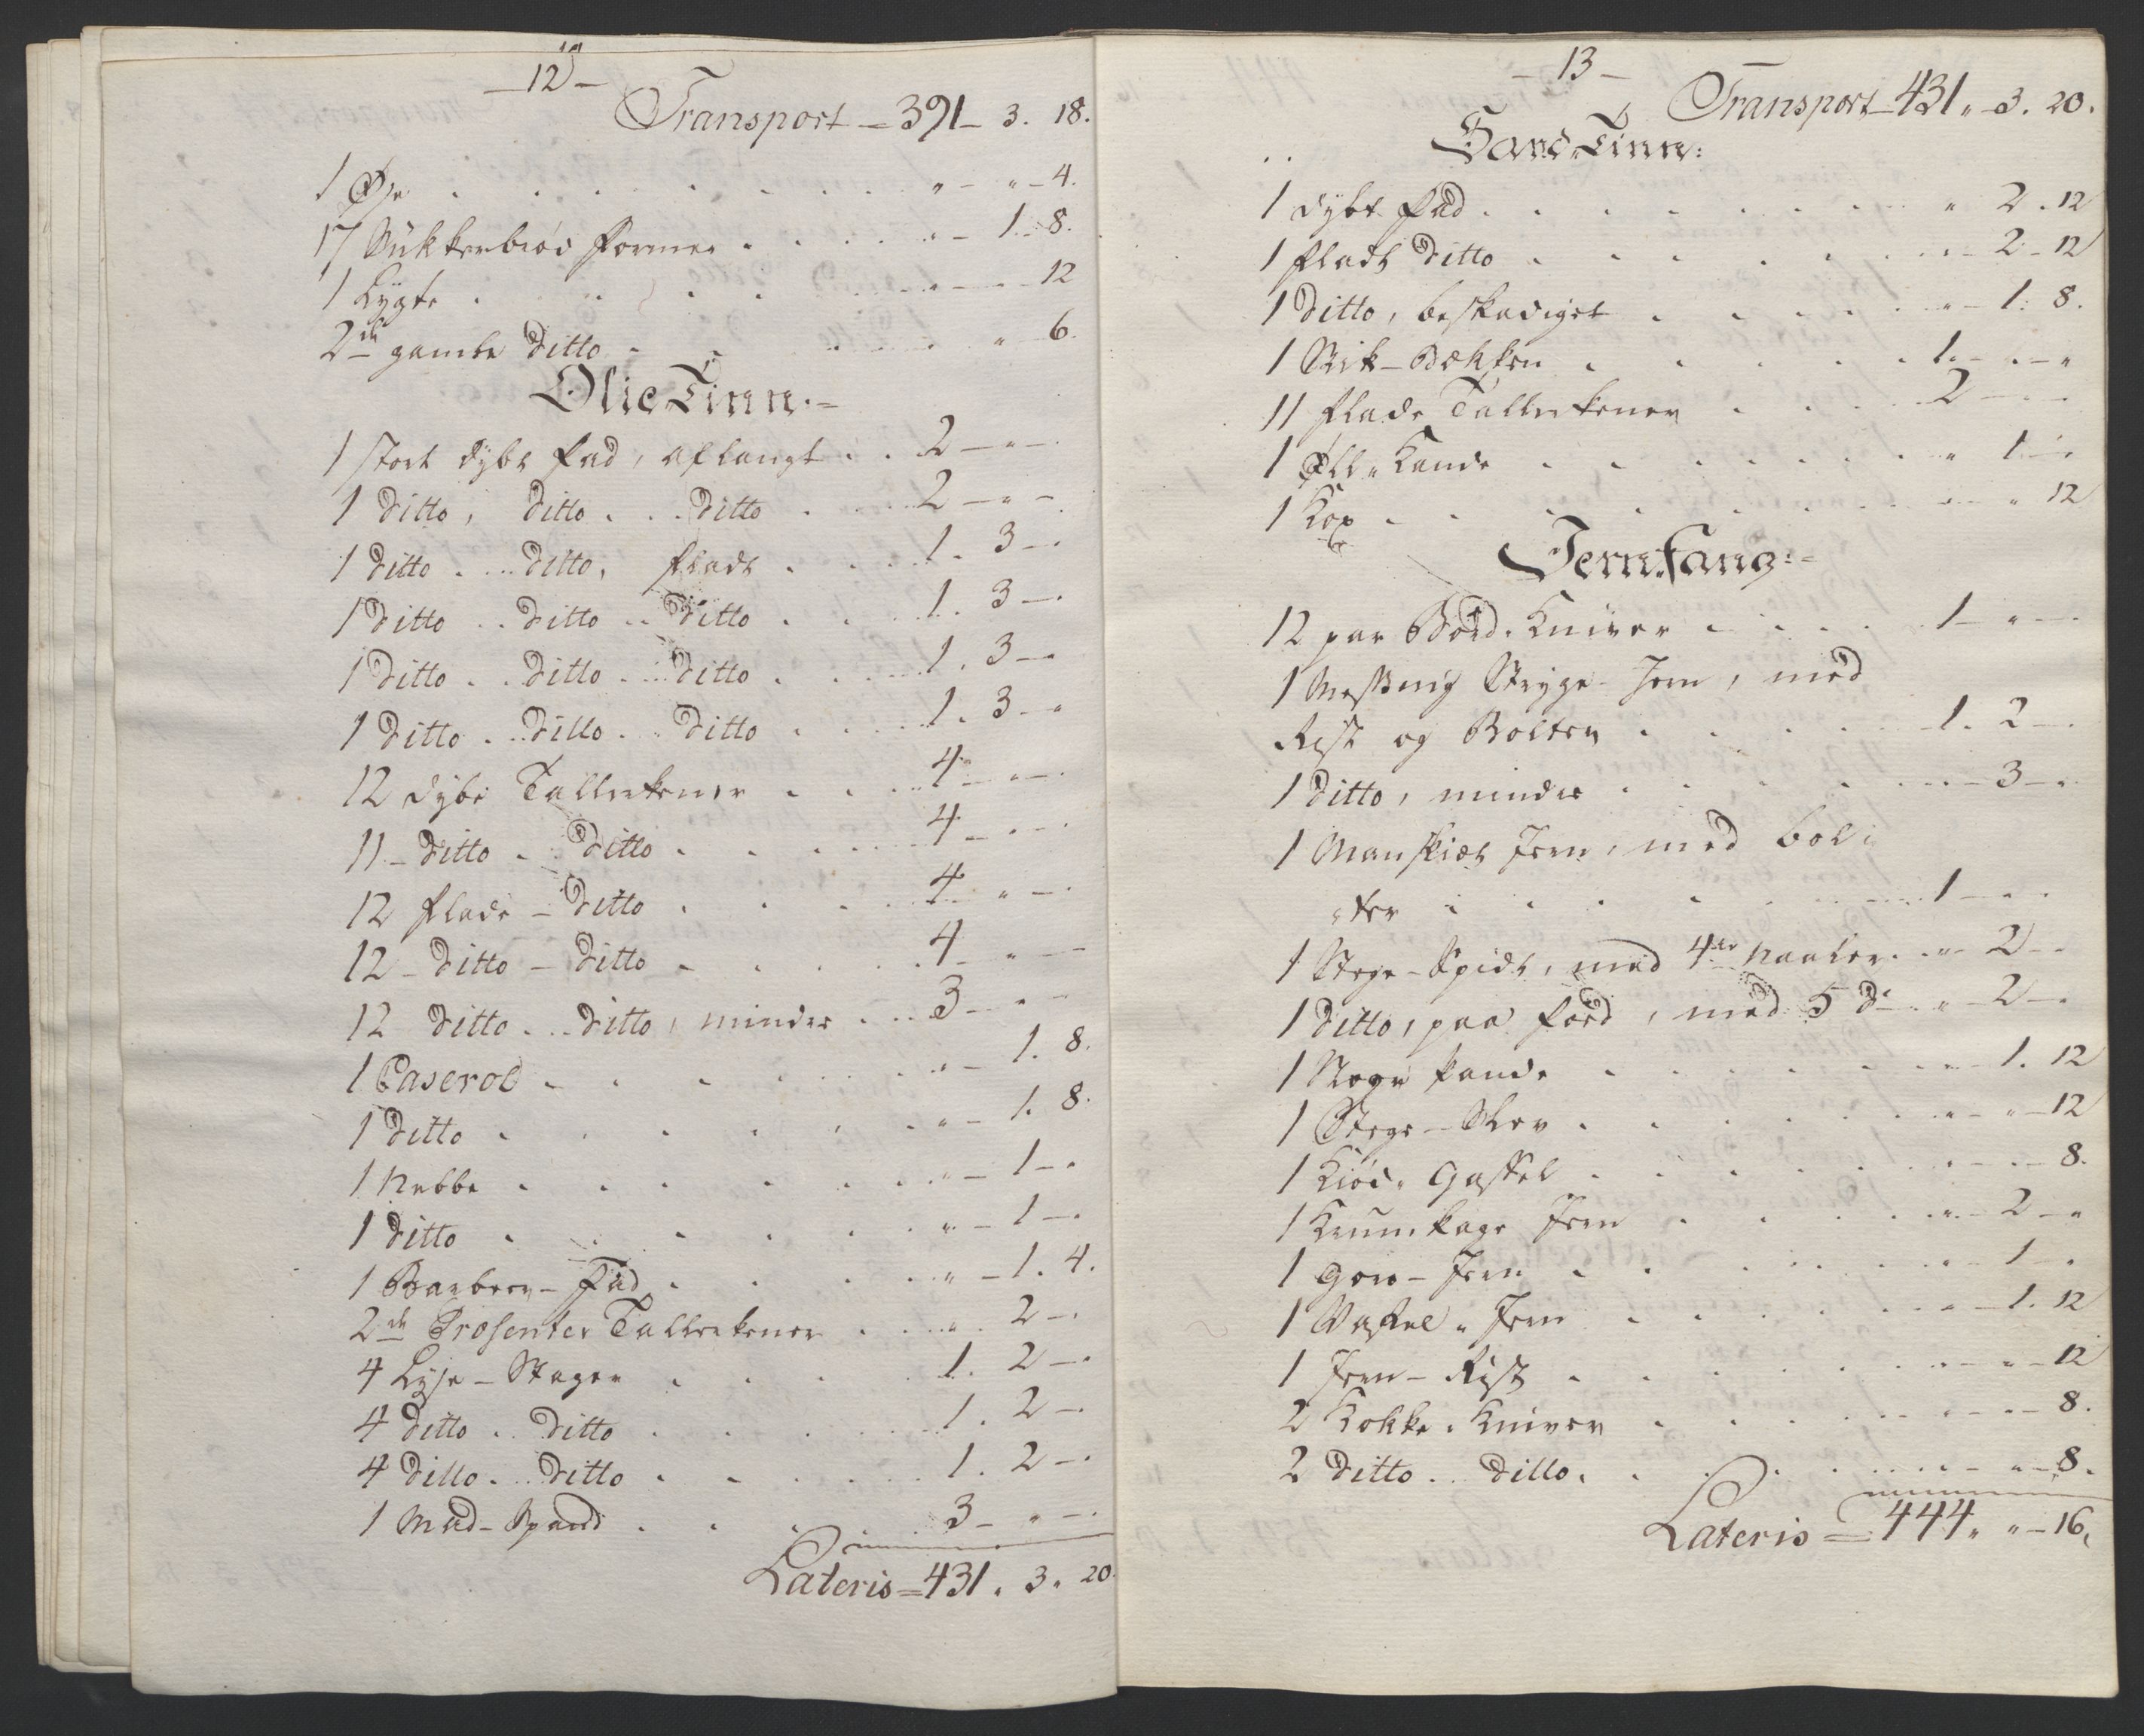 — 12 —
Transport — 391 — 3. 18.
1 Øse . . . . . . . . „ — „ — 4.
17 Sukkerbrød Former . . . . . „ — 1. 8.
1 Lygte . . . . . . . „ — „ — 12
2de gamle Ditto . . . . . „ — 6.
Olie Tinn.=
1 stort dybt Fad, aflangt . . 2 — „ —
1 Ditto, Ditto . . . Ditto . . . 2 — „ —
1 Ditto . . . Ditto, fladt . . . 1. 3 — .
1 Ditto . . Ditto . . Ditto . . . 1. 3 — .
1 Ditto . . Ditto . . Ditto . . . 1. 3 — „
1 Ditto . . Ditto . . Ditto . . . 1. 3 — „
12 dybe Tallerkener . . . 4 — „ — .
11 — Ditto . . Ditto . . . . 4 — „ — .
12 flade — Ditto . . . . 4 — „ — .
12 — Ditto — Ditto . . . . 4 — „ —
12 Ditto . . Ditto, minder . . . 3 — „ —
1 Caserol . . . . . . . „ — 1. 8.
1 Ditto . . . . . . . „ — 1. 8.
1 Nebbe . . . . . . . „ — 1 — .
1 Ditto . . . . . . . „ — 1 — .
1 Barbeer-Fad . . . . . „ — 1. 4.
2de Præsenter Tallerkener . . . „ . 2 — .
4 Lyse-Stager . . . . . 1. 2 — .
4 Ditto . . Ditto . . . . . 1. 2 — .
4 Ditto . . Ditto . . . . . 1. 2 — .
1 Mad-Spand . . . . . 3 — „ — .
Lateris = 431 „ 3 „ 20.
— 13 —
Transport — 431 „ — 3. 20.
Hand „ Tinn:
1 dybt Fad . . . . . . . . „ 2. 12
1 fladt Ditto . . . . . . . „ — 2 — 12
1 Ditto, beskadiget . . . . . „ — 1: 8.
1 Stik-Bekken . . . . . 1. — „ — „
11 flade Tallerkener . . . . 2 — „ —
1 Øll „ Kande . . . . . . . „ 1 — „
1 Kop . . . . . . . . „ — „ 12
Jernfang:=
12 par Bord-Kniver . . . . . 1 — „ — .
1 Messing Stryge-Jern, med
Rist og Bolter . . . . . 1. 2 — .
1 Ditto, minder . . . . . „ — 3 — „
1 Manskiet Jern, med bol=
„ter . . . . . . . 1 — „ — .
1 Stege-Spidt, med 4er Naaler . „ — 2 — .
1 Ditto, paa Foed, med 5 Do . „ — 2 — .
1 Stege Pande . . . . . . „ — 1. 12
1 Stege-Slev . . . . . . „ — „ — 12
1 Kiød „ Gaffel . . . . . „ — „ — 8.
1 Krumkage Jern . . . . . „ — 2 — „
1 Goro-Jern . . . . . . „ — 1 — „
1 Vaffel „ Jern . . . . . „ — 1. 12
1 Jern-Rist . . . . . . „ — „ — 12
2 Kokke-Kniver . . . . . „ — „ — 8.
2 Ditto . . Ditto . . . . . „ — „ — 8.
Lateris = 444 „ „ — 16.